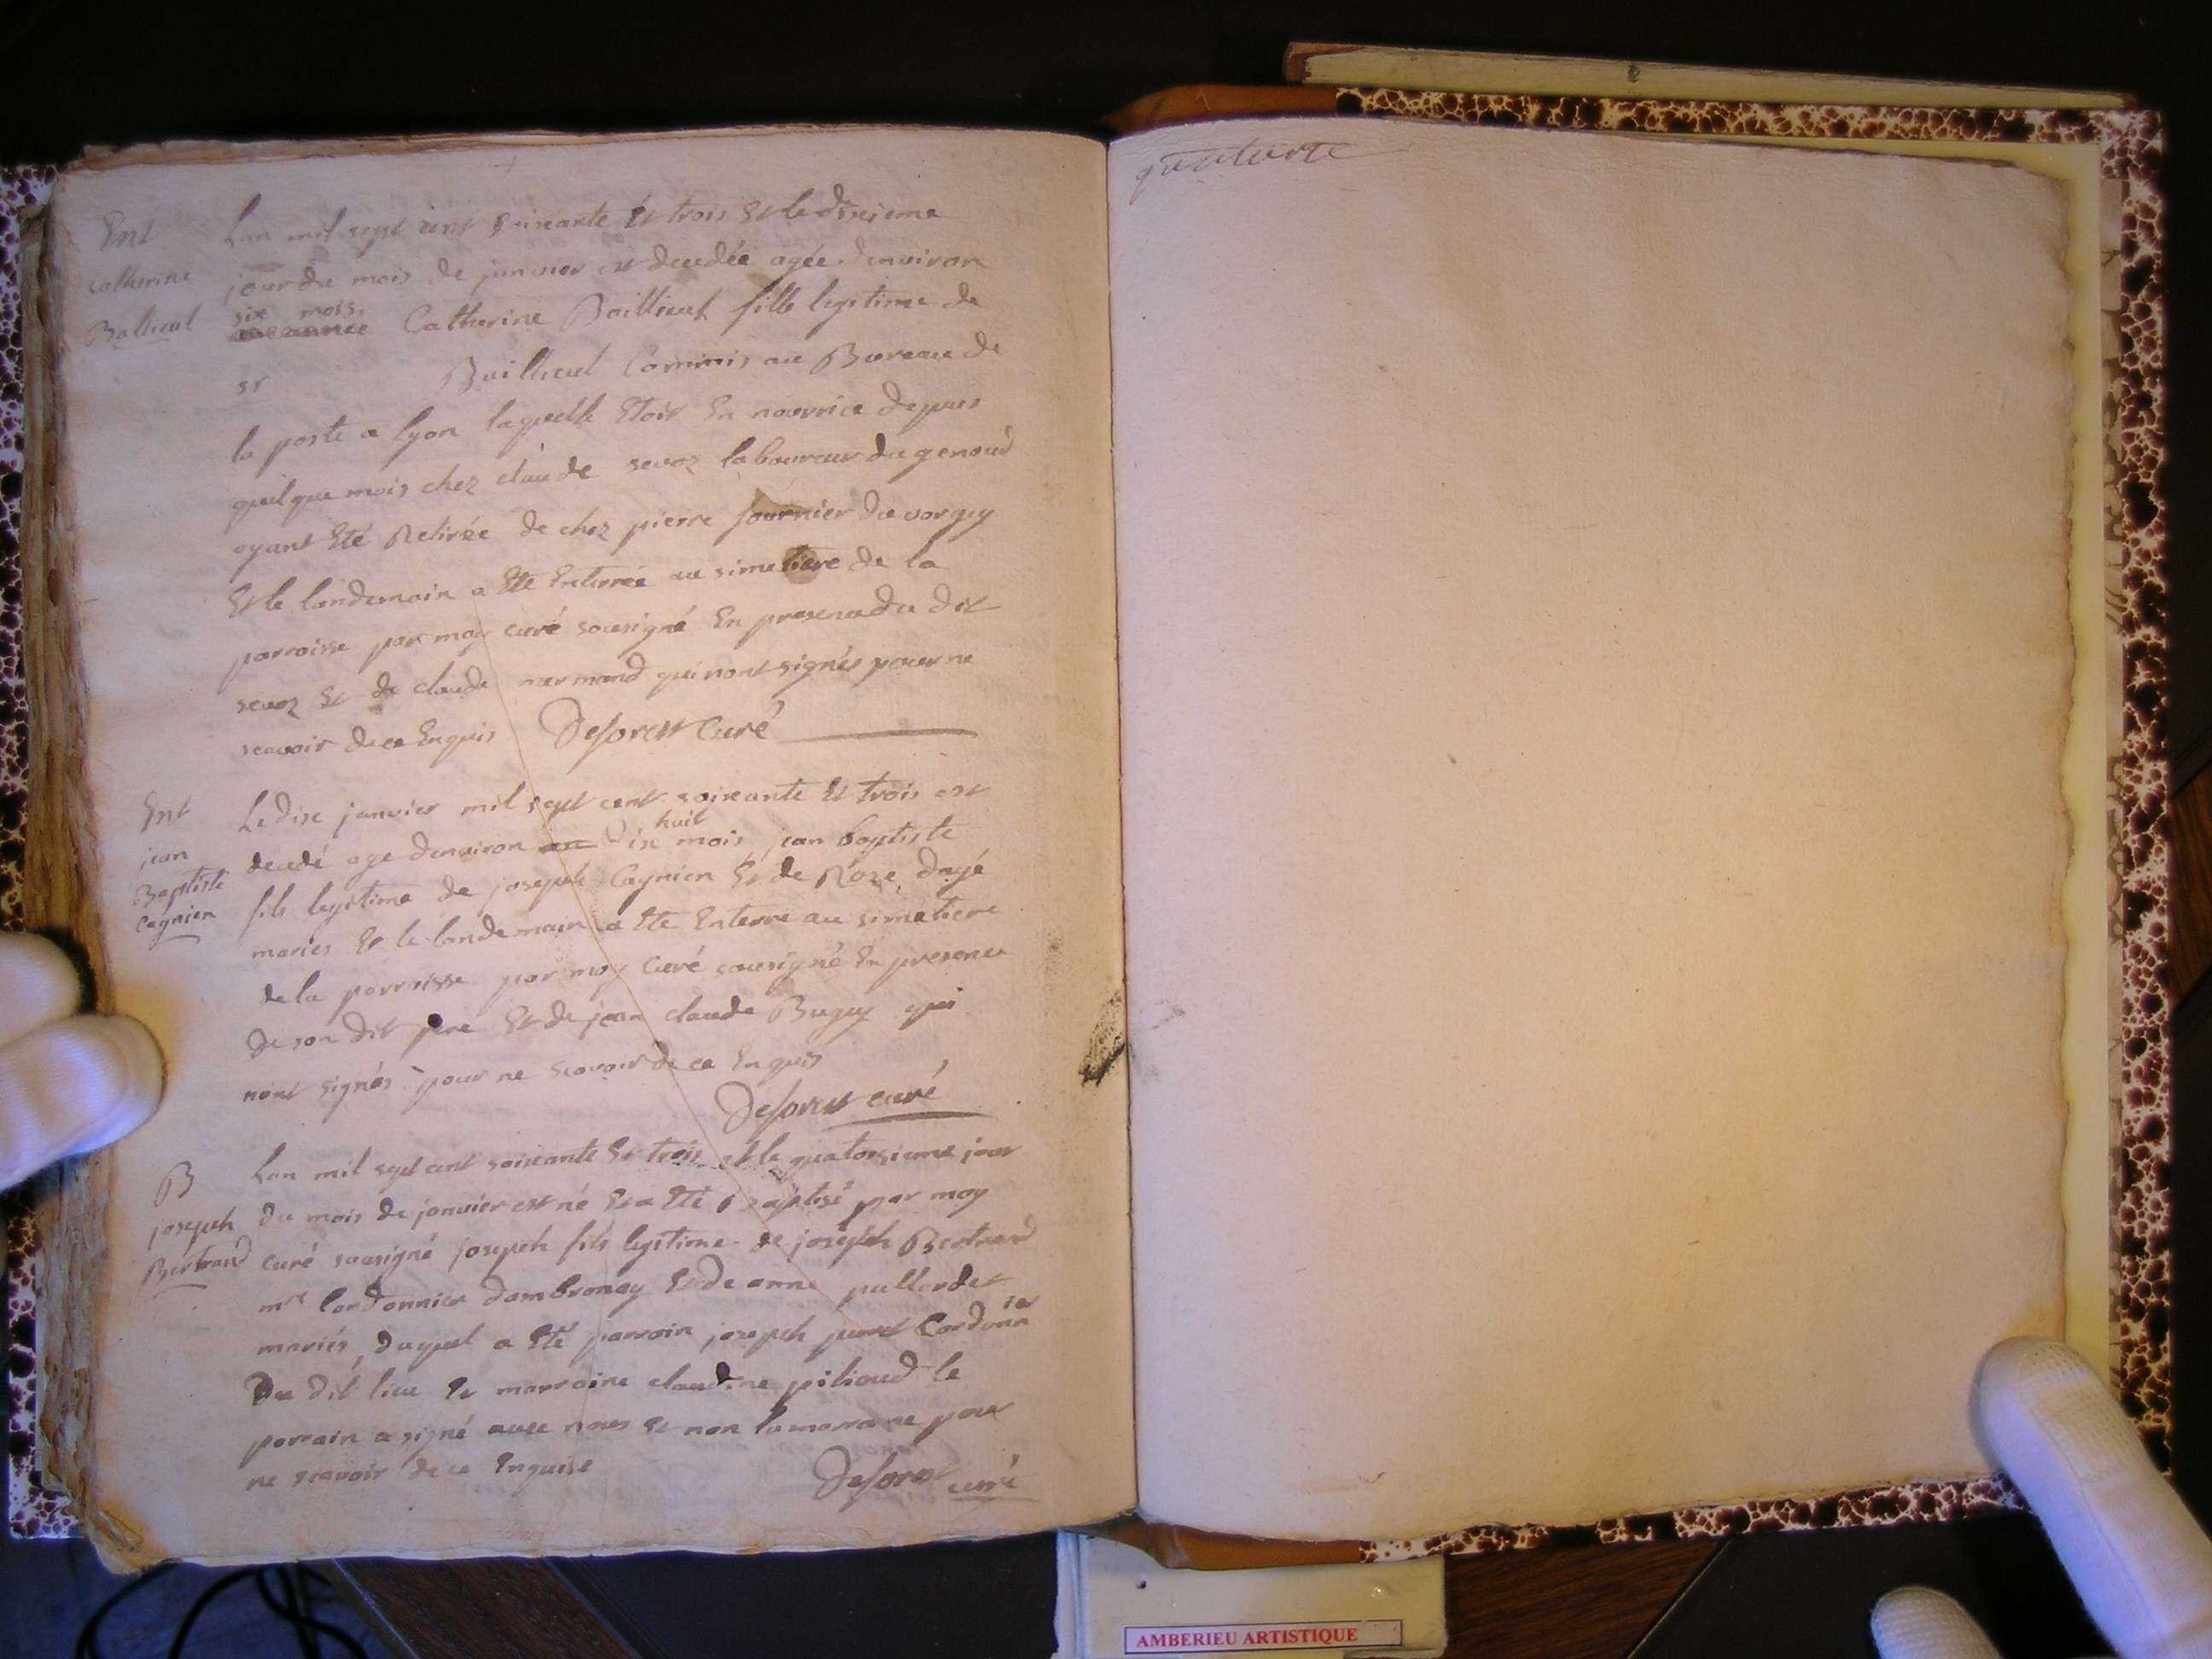 Ent
Catherine
Ballieul
Lan mil sept cent soixante Et trois Et le dixieme
jour du mois de janvier est decedée agée denviron
six mois
une année Catherine Baillieul fille legitime de
sr Baillieul Commis au Bureau de
la poste a Lyon laquelle Etoit En nourrice depuis
quelque mois chez claude sevoz laboureur du genoud
ayant Eté Retirée de chez pierre fournier du vorgey
Et le landemain a Eté Enterrée au simetiere de la
parroisse par moy curé sousigné En presence du dit
sevoz Et de claude mermand qui nont signés pour ne
scavoir de ce Enquis Deforest Curé
Ent
jean
Baptiste
Cagnien
Le dix janvier mil sept cent soixante Et trois est
huit
decedé age denviron un dix mois jean baptiste
fils legitime de joseph Cagnien Et de Roze dayé
mariés Et le landemain a Eté Enterré au simetiere
de la parroisse par moy Curé sousigné En presence
de son dit pere Et de jean claude Buguy qui
nont signés pour ne scavoir de ce Enquis
Deforest curé
B
joseph
Bertrand
Lan mil sept cent soixante Et trois et le quatorsieme jour
du mois de janvier est né Et a Eté Baptisé par moy
curé sousigné joseph fils legitime de joseph Bertrand
mre Cordonnier dambronay Et de anne pallordet
mariés, duquel a Eté parrain joseph perret Cordonnier
Du dit lieu Et marraine claudine pilioud le
parrain a signé avec nous Et non la marraine pour
ne scavoir de ce Enquise
Deforest curé
quatorze
AMBERIEU ARTISTIQUE